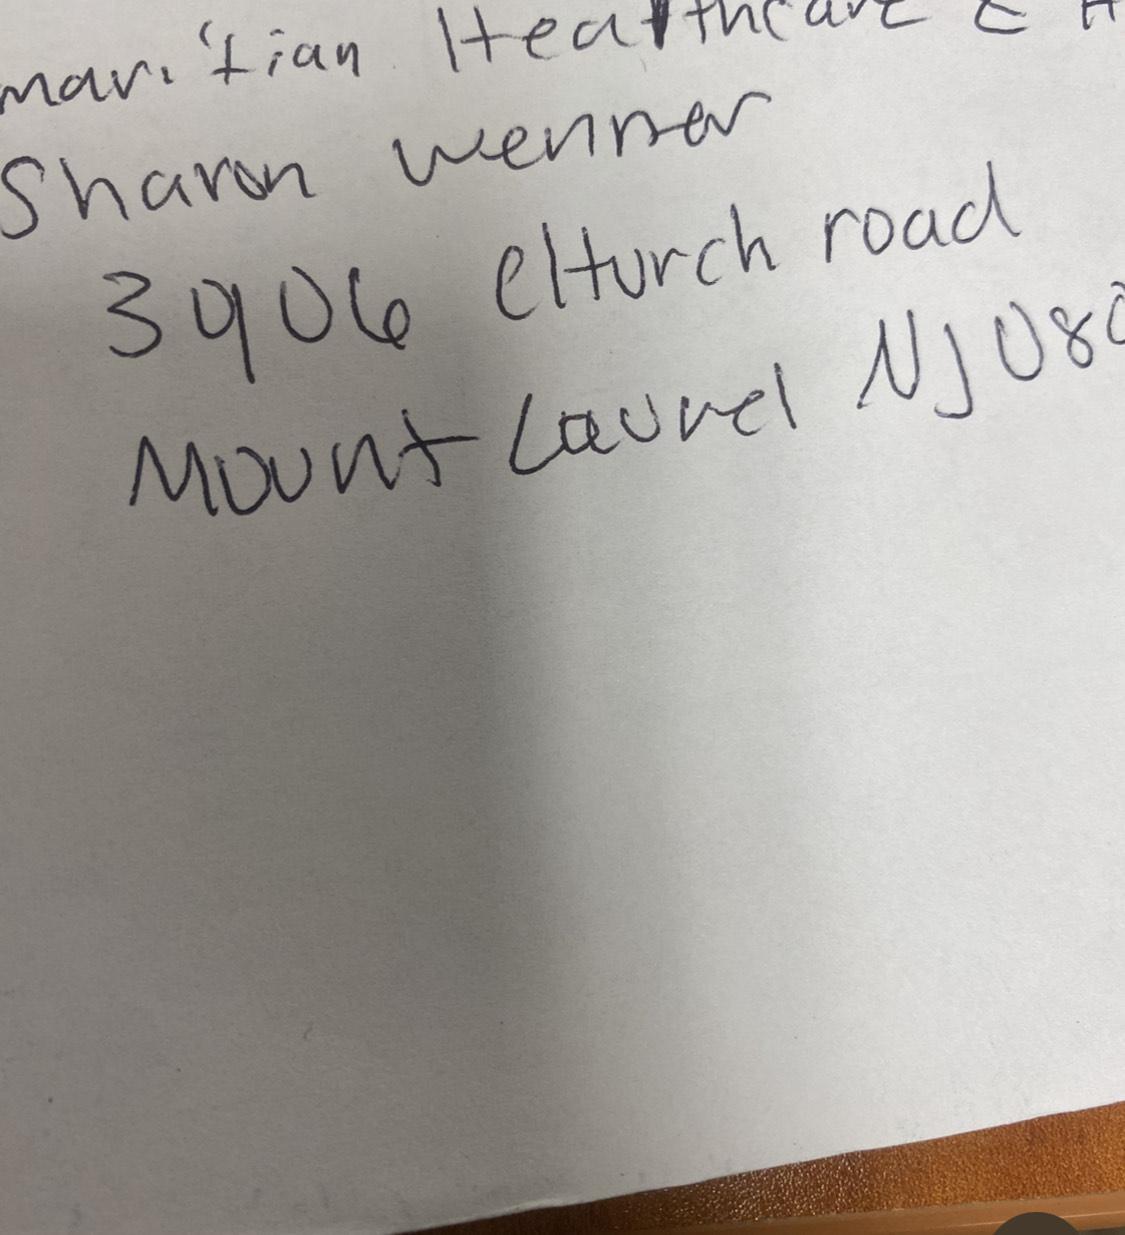 mari'tian Healthcare & H
Sharon wenner
3906 church road
Mount Laurel NJ 080